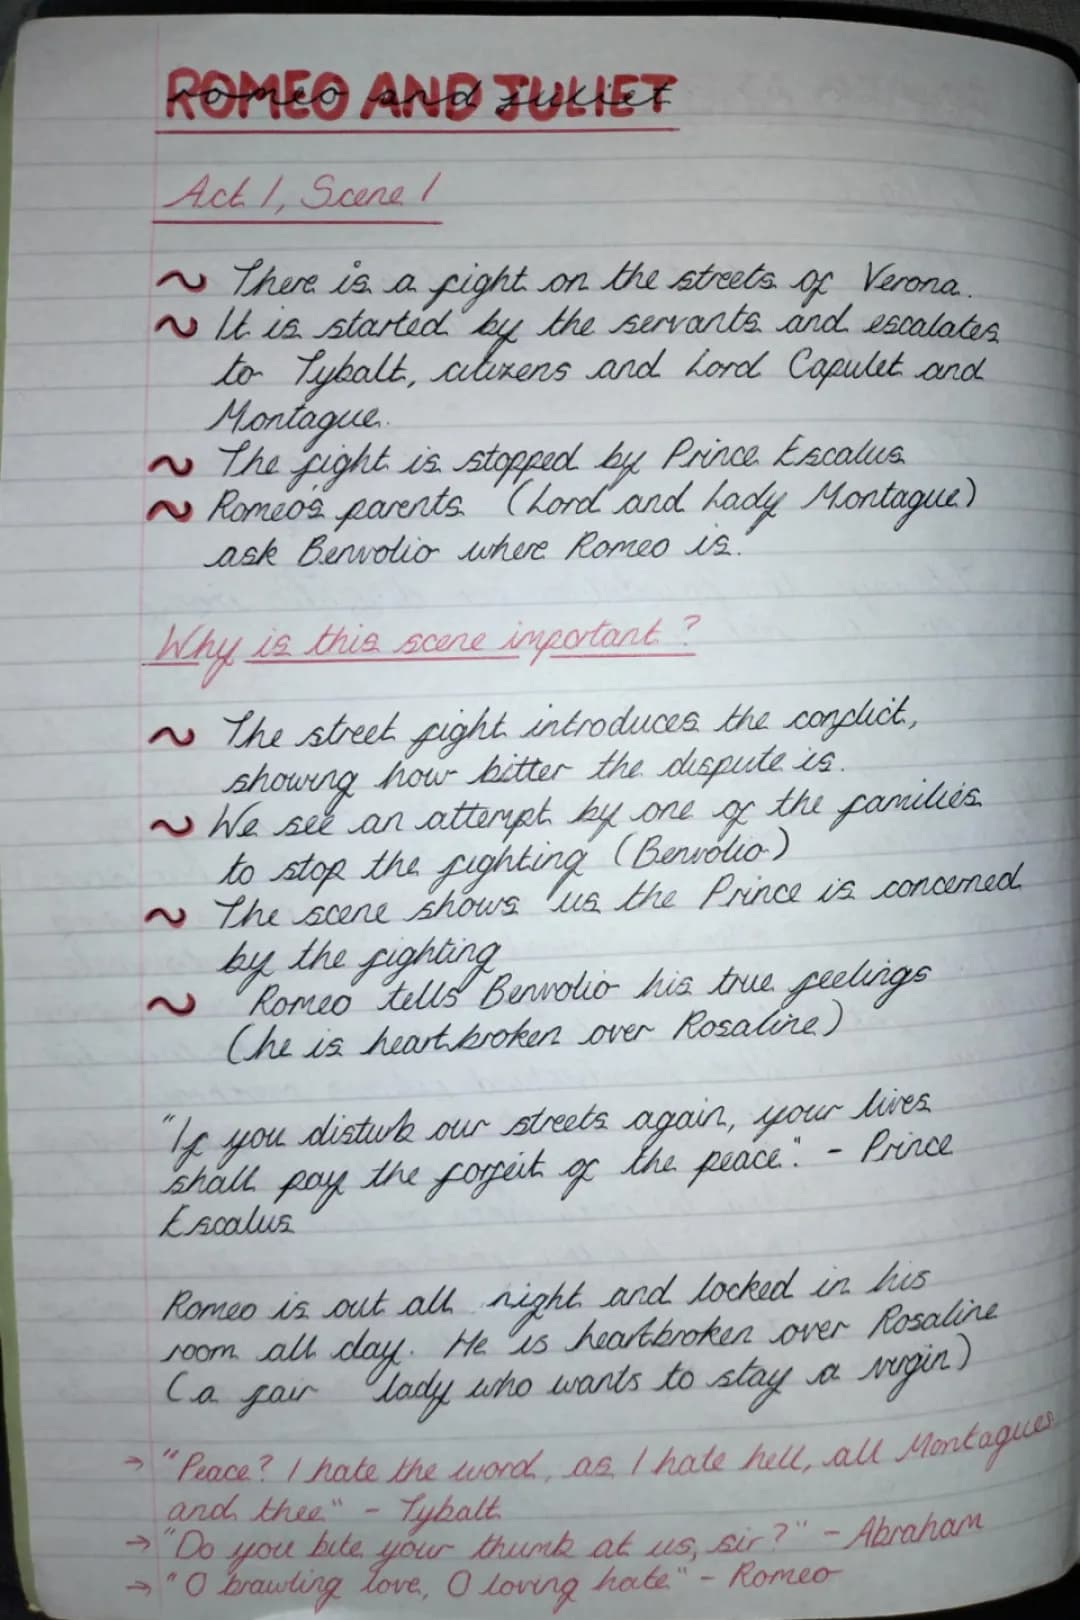 ROMEO AND JULIET
romeo and juliet
Act 1, Scene 1
~ There is a fight on the streets of Verona.
~ It is started by the servants and escalates
to Tybalt, citizens and Lord Capulet and
Montague.
~ The fight is stopped by Prince Escalus
~ Romeo's parents (Lord and Lady Montague)
ask Benvolio where Romeo is.
Why is this scene important?
~ The street fight introduces the conflict,
showing how bitter the dispute is.
~ We see an attempt by one of the families
to stop the fighting (Benvolio)
~ The scene shows us the Prince is concerned
by the fighting
~ Romeo tells Benvolio his true feelings
(he is heartbroken over Rosaline)
"If you disturb our streets again, your lives
shall pay the forfeit of the peace." - Prince
Escalus
Romeo is out all night and locked in his
room all day. He is heartbroken over Rosaline
(a fair lady who wants to stay a virgin)
→ "Peace? I hate the word, as I hate hell, all Montagues
and thee" - Tybalt
→ "Do you bite your thumb at us, sir?" - Abraham
→ "O brawling love, O loving hate" - Romeo